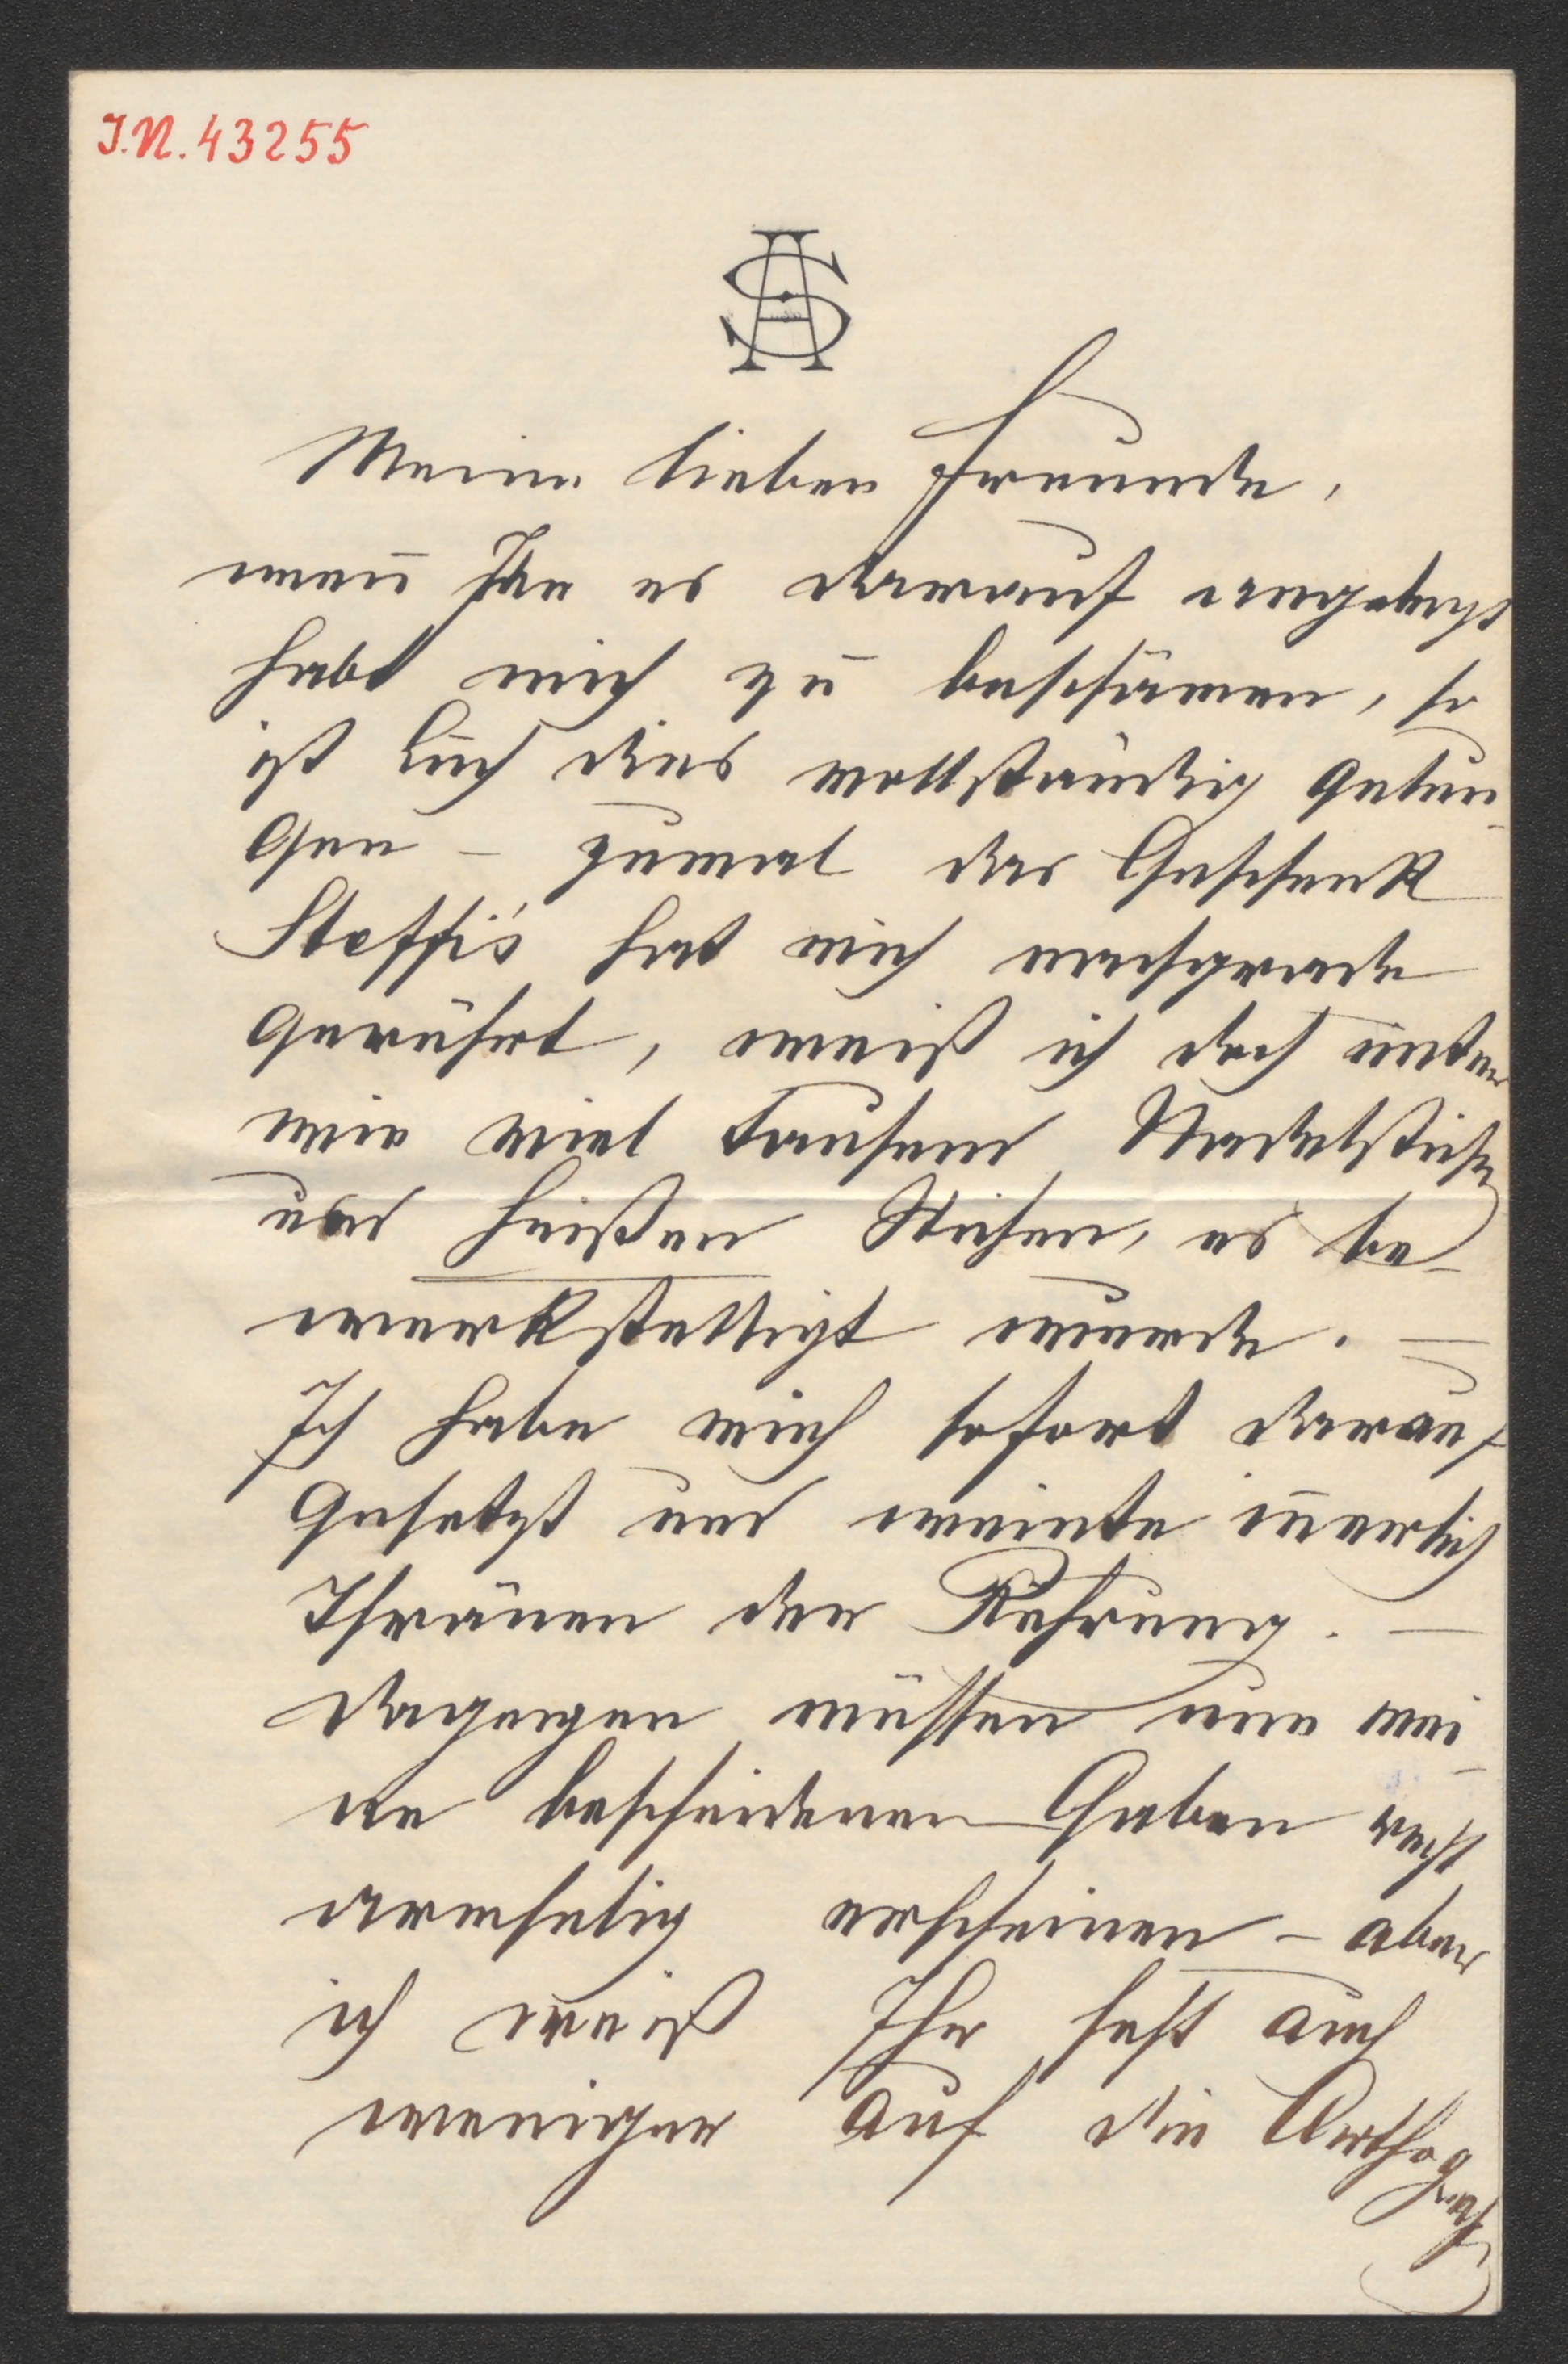 I.N. 43255
AS
Meine lieben Freunde,
weñ Ihr es darauf angelegt
habt mich zu beschämen, so
ist Euch dies vollständig gelun-
gen – zumal das Geschenk
Steffi's hat mich nachgerade
gerührt, weiß ich doch unter
wie viel tausend Nadelstichen
und heißen Stichen, es be-
werkstelligt wurde. —
Ich habe mich sofort darauf
gesetzt und weinte iñerlich
Thränen der Rührung. —
Dagegen müssen nun mei-
ne bescheidenen Gaben recht
armselig erscheinen – aber
ich weiß Ihr seht auch
weniger auf die Orthograph